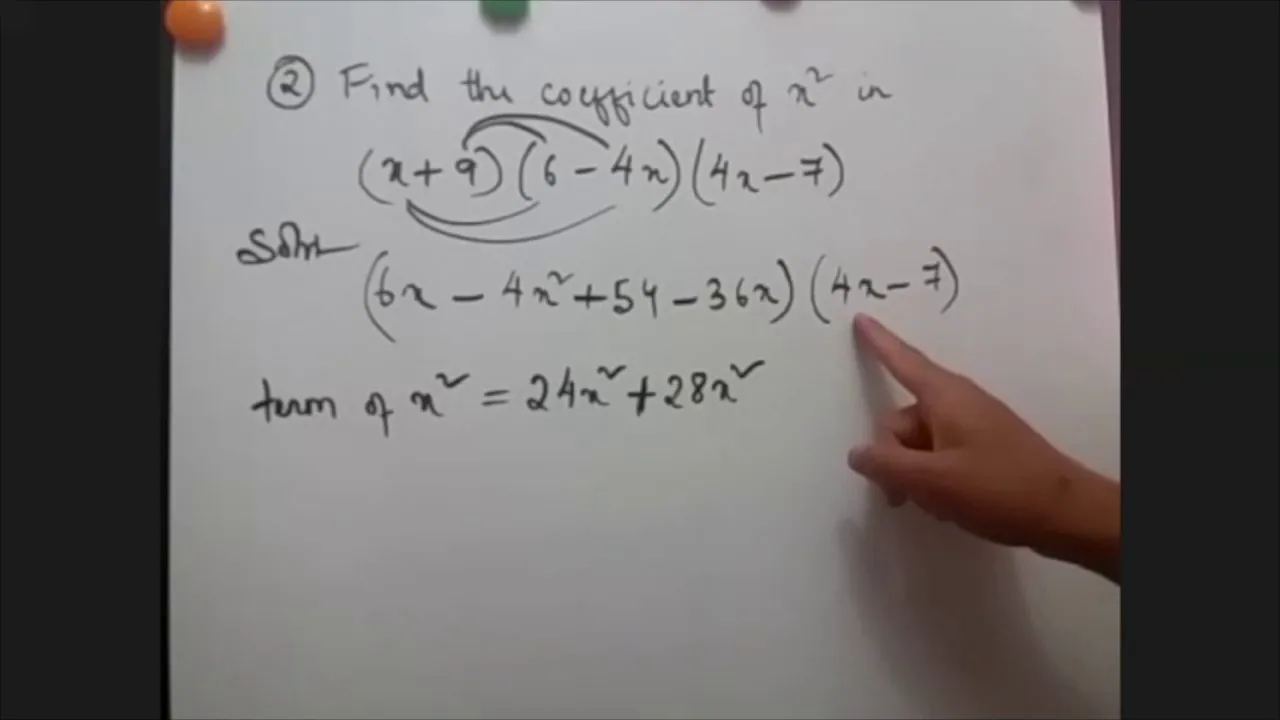 ② Find the coefficient of x² in
(x + 9) (6 - 4x) (4x - 7)
Soln
(6x - 4x² + 54 - 36x) (4x - 7)
term of x² = 24x² + 28x²